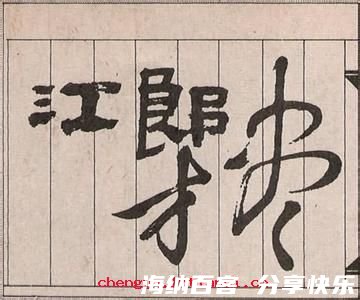 江郎才尽
海纳百客 分享快乐